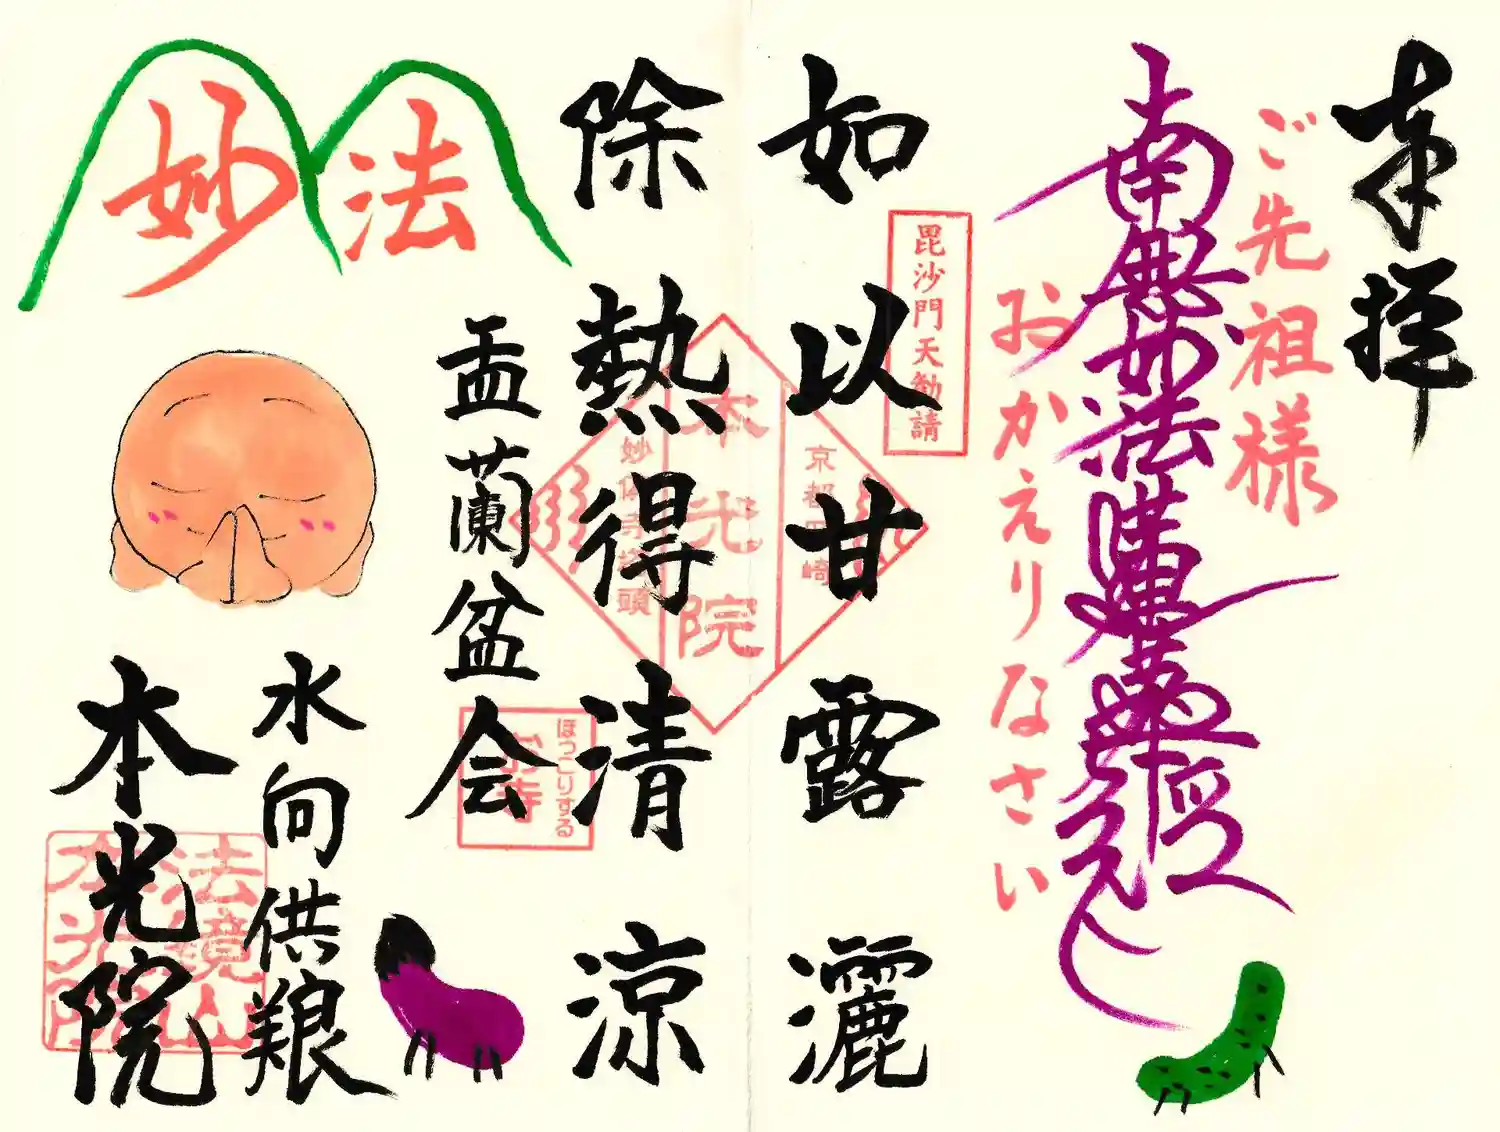 奉拝
ご先祖様
南無妙法蓮華経
おかえりなさい
毘沙門天勧請
如以甘露灑
除熱得清涼
京都岡崎
本光院
妙傳寺塔頭
盂蘭盆会
ほっこりする
お寺
妙法
水向供養
本光院
法鏡山
本光院